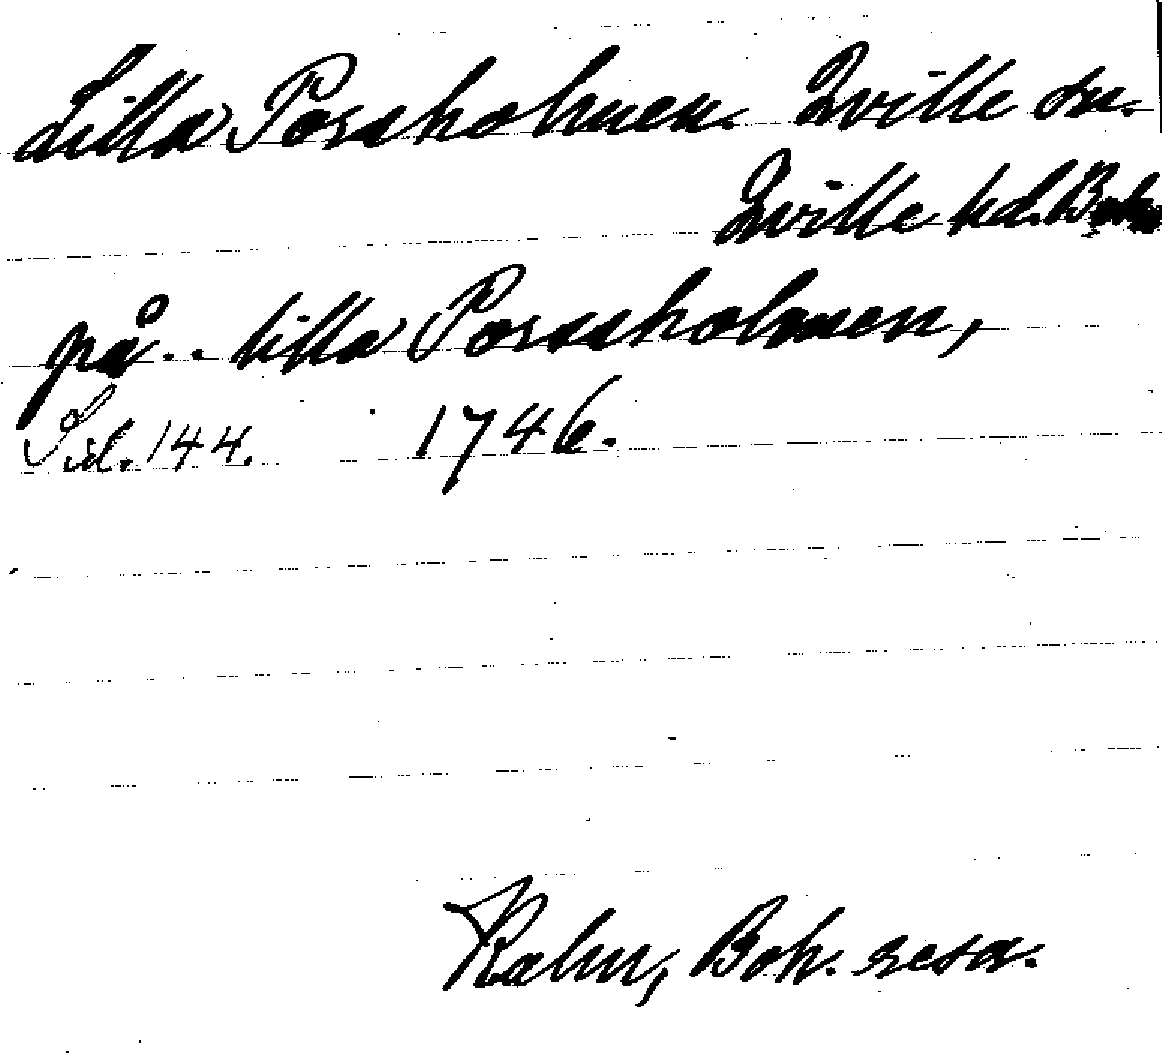 Lilla Porssholmen. Qville sn.
Qville hd. Boh
på .. lilla Porssholmen,
Sid. 144. 1746.
Kalm, Boh. resa.